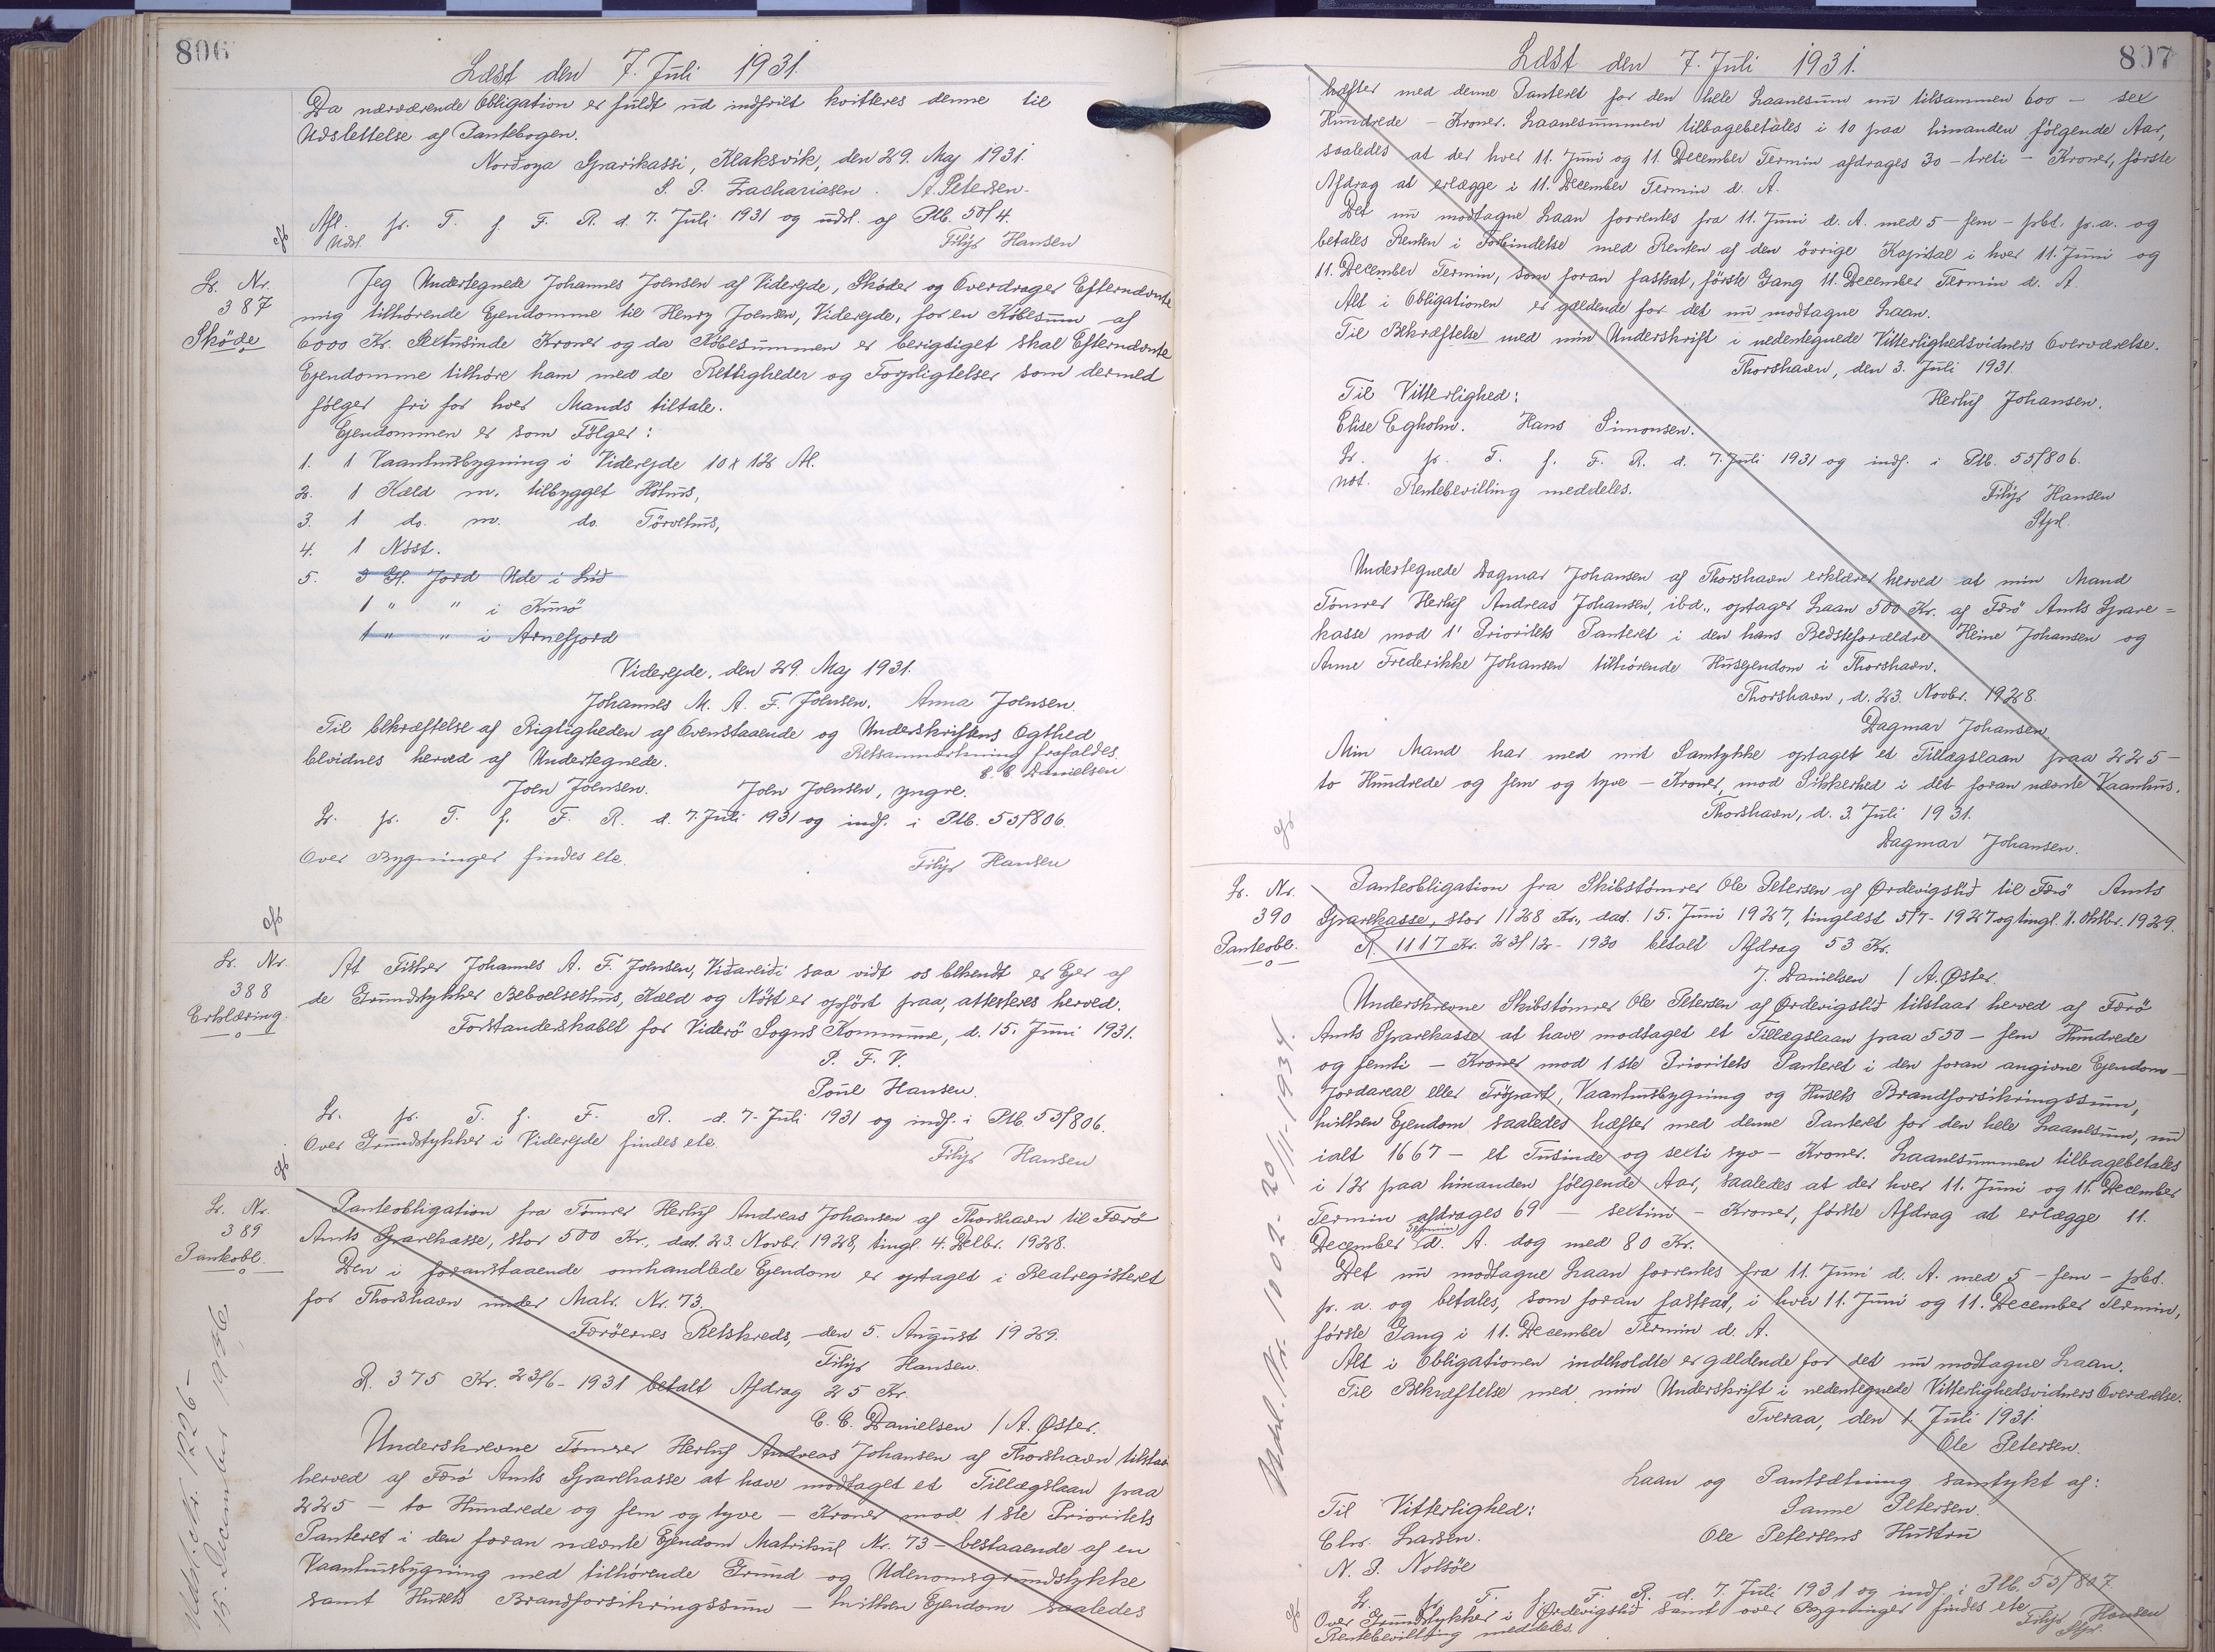 806
Læst den 7. Juli 1931.
Da nærværende Obligation er fuldt ud indfriet kvitteres denne til
Udslettelse af Pantebogen.
Norðoya Sparikassi, Klaksvik, den 29. Maj 1931.
S. P. Zachariasen. A. Petersen.
Afl. pr. T. f. F. R. d. 7. Juli 1931 og udsl. af Ptb. 50/4.
Udsl. Filip Hansen
Lr. Nr.
387
Skøde
Jeg Undertegnede Johannes Joensen af Viderejde, Skøder og Overdrager Efternævnte
mig tilhørende Ejendomme til Henry Joensen, Viderejde, for en Købesum af
6000 Kr. Sextusinde Kroner og da Købesummen er berigtiget skal Efternævnte
Ejendomme tilhøre ham med de Rettigheder og Forpligtelser som dermed
følger fri for hver Mands tiltale.
Ejendommen er som Følger:
1. 1 Vaanhusbygning i Viderejde 10 x 12 Al.
2. 1 Kæld m. tilbygget Høhus,
3. 1 do. m. do. Tørvehus,
4. 1 Nøst.
5. 3 Gl. Jord Ude i Lið
1 " " i Kunø
1 " " i Arnefjord
Viderejde, den 29. Maj 1931.
Johannes M. A. F. Joensen. Anna Joensen.
Til bekræftelse af Rigtigheden af Ovenstaaende og Underskriftens Ægthed
bevidnes herved af Undertegnede. Retsanmærkning frafaldes.
C. C. Danielsen
Joen Joensen. Joen Joensen, yngre.
Lr. pr. T. f. F. R. d. 7. Juli 1931 og indf. i Ptb. 55/806.
Over Bygninger findes ete. Filip Hansen
Lr. Nr.
388
Erklæring.
At Fisker Johannes A. F. Joensen, Viðareiði saa vidt os bekendt er Ejer af
de Grundstykker Beboelseshus, Kæld og Nøst er opført paa, attesteres herved.
Forstanderskabet for Viderø Sogns Kommune, d. 15. Juni 1931.
P. F. V.
Poul Hansen.
Lr. pr. T. f. F. R. d. 7. Juli 1931 og indf. i Ptb. 55/806.
Over Grundstykker i Viderejde findes ete.
Filip Hansen
Lr. Nr.
389
Panteobl.
Panteobligation fra Tømrer Herluf Andreas Johansen af Thorshavn til Færø
Amts Sparekasse, stor 500 Kr., dat. 23. Novbr. 1928, tingl. 4. Decbr. 1928.
Den i foranstaaende omhandlede Ejendom er optaget i Realregisteret
for Thorshavn under Matr. Nr. 73.
Færøernes Retskreds, den 5. August 1929.
Filip Hansen.
R. 375 Kr. 23/6- 1931 betalt Afdrag 25 Kr.
C. C. Danielsen / A. Øster.
Underskrevne Tømrer Herluf Andreas Johansen af Thorshavn tilstaar
herved af Færø Amts Sparekasse at have modtaget et Tillægslaan paa
225 - to Hundrede og fem og tyve - Kroner mod 1ste Prioritets
Panteret i den foran nævnte Ejendom Matrikul Nr. 73 - bestaaende af en
Vaanhusbygning med tilhørende Grund og Udenomsgrundstykke
samt Husets Brandforsikringssum - hvilken Ejendom saaledes
Udsl. Nr. 1206-
15. December 1936
807
Læst den 7. Juli 1931.
hæfter med denne Panteret for den hele Laanesum nu tilsammen 600 - sex
Hundrede - Kroner. Laanesummen tilbagebetales i 10 paa hinanden følgende Aar,
saaledes at der hver 11. Juni og 11. December Termin afdrages 30 - treti - Kroner, første
Afdrag at erlægge i 11. December Termin d. A.
Det nu modtagne Laan forrentes fra 11. Juni d. A. med 5 - fem - pCt. p.a. og
betales Renten i Forbindelse med Renten af den øvrige Kapital i hver 11. Juni og
11. December Termin, som foran fastsat, første Gang 11. December Termin d. A.
Alt i Obligationen er gældende for det nu modtagne Laan.
Til Bekræftelse med min Underskrift i nedentegnede Vitterlighedsvidners Overværelse.
Thorshavn, den 3. Juli 1931.
Til Vitterlighed: Herluf Johansen.
Elise Egholm. Hans Simonsen.
Lr. pr. T. f. F. R. d. 7. Juli 1931 og indf. i Ptb. 55/806.
not. Rentebevilling meddeles. Filip Hansen
Stpl.
Undertegnede Dagmar Johansen af Thorshavn erklærer herved at min Mand
Tømrer Herluf Andreas Johansen, ibd., optager Laan 500 Kr. af Færø Amts Spare=
kasse mod 1' Prioritets Panteret i den hans Bedsteforældre Heine Johansen og
Anne Frederikke Johansen tilhørende Husejendom i Thorshavn.
Thorshavn, d. 23. Novbr. 1928.
Dagmar Johansen.
Min Mand har med mit Samtykke optaget et Tillægslaan paa 225 -
to Hundrede og fem og tyve - Kroner, mod Sikkerhed i det foran nævnte Vaanhus.
Thorshavn, d. 3. Juli 1931.
Dagmar Johansen.
Lr. Nr.
390
Panteobl.
Panteobligation fra Skibstømrer Ole Petersen af Ørdevigslið til Færø Amts
Sparekasse, stor 1128 Kr., dat. 15. Juni 1927, tinglæst 5/7- 1927 og tingl. 1. Oktbr. 1929.
R. 1117 Kr. 23/12- 1930 betalt Afdrag 53 Kr.
J. Danielsen / A. Øster.
Underskrevne Skibstømrer Ole Petersen af Ørdevigslið tilstaar herved af Færø
Amts Sparekasse at have modtaget et Tillægslaan paa 550 - fem Hundrede
og femti - Kroner mod 1ste Prioritets Panteret i den foran angivne Ejendom -
Jordareal eller Trøpart, Vaanhusbygning og Husets Brandforsikringssum,
hvilken Ejendom saaledes hæfter med denne Panteret for den hele Laanesum, nu
ialt 1667 - et Tusinde og sexti syv - Kroner. Laanesummen tilbagebetales
i 12 paa hinanden følgende Aar, saaledes at der hver 11. Juni og 11. December
Termin afdrages 69 - sextini - Kroner, første Afdrag at erlægge 11.
December Termin d. A. dog med 80 Kr.
Det nu modtagne Laan forrentes fra 11. Juni d. A. med 5 - fem - pCt.
p. a. og betales, som foran fastsat, i hver 11. Juni og 11. December Termin,
første Gang i 11. December Termin d. A.
Alt i Obligationen indeholdte er gældende for det nu modtagne Laan.
Til Bekræftelse med min Underskrift i nedentegnede Vitterlighedsvidners Overværelse.
Tveraa, den 1. Juli 1931.
Ole Petersen.
Laan og Pantsætning samtykt af:
Til Vitterlighed: Sanne Petersen.
Chr. Larsen. Ole Petersens Hustru
N. P. Nolsøe
Lr. pr. T. f. F. R. d. 7. Juli 1931 og indf. i Ptb. 55/807
Over Grundstykker i Ørdevigslið samt over Bygninger findes ete
Rentebevilling meddeles. Filip Hansen
Stpl.
Udsl. Nr. 1002- 20/11-1934.